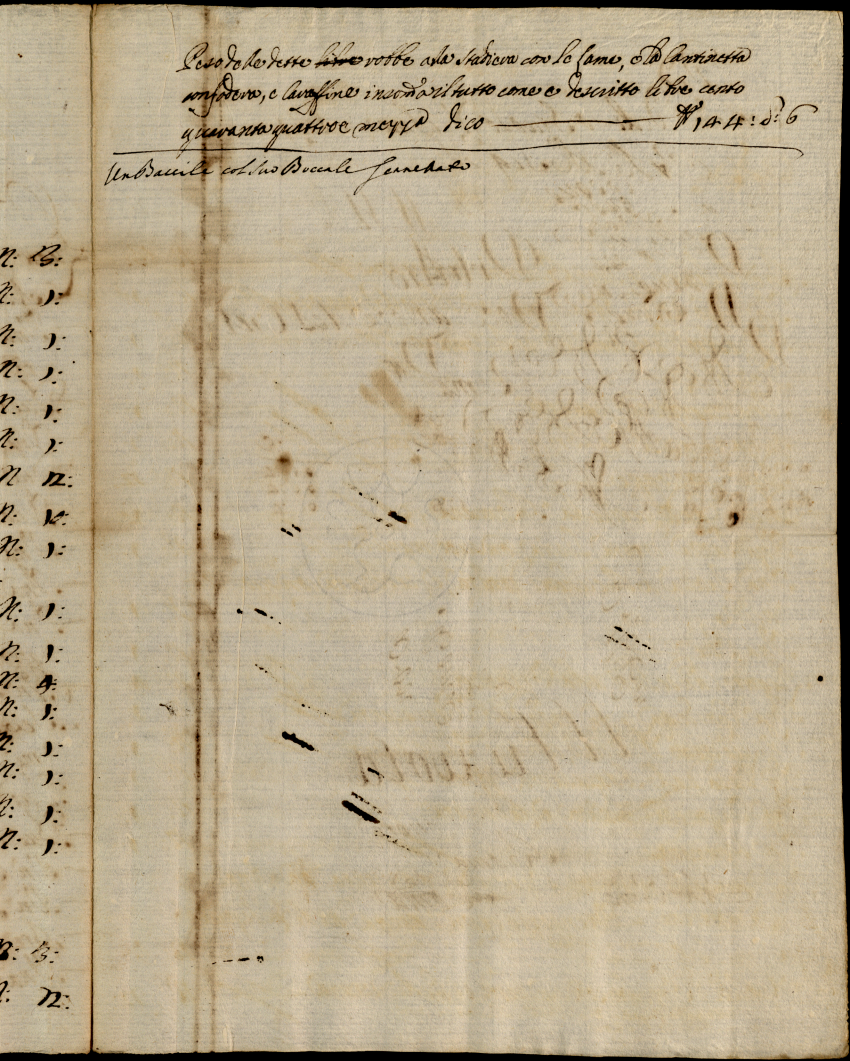 N: 13:
N: 1:
N: 1:
N: 1:
N: 1:
N: 1:
N 12:
N: 10:
N: 1:
N: 1:
N: 1:
N: 4:
N: 1:
N: 1:
N: 1:
N: 1:
N: 1:
N: 3:
N: 12:
Peso delle dette libre robbe alla stadiera con le lame, e la Cantinetta
con fodera, e Caraffine insom̃a il tutto come è descritto libre cento
quaranta quattro e mezza dico 144: d: 6
Un Bacile col suo Boccale